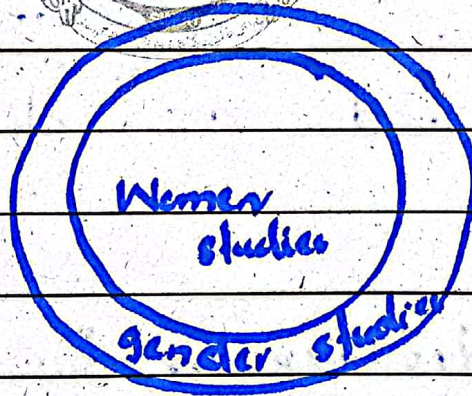 Women
studies
gender studies